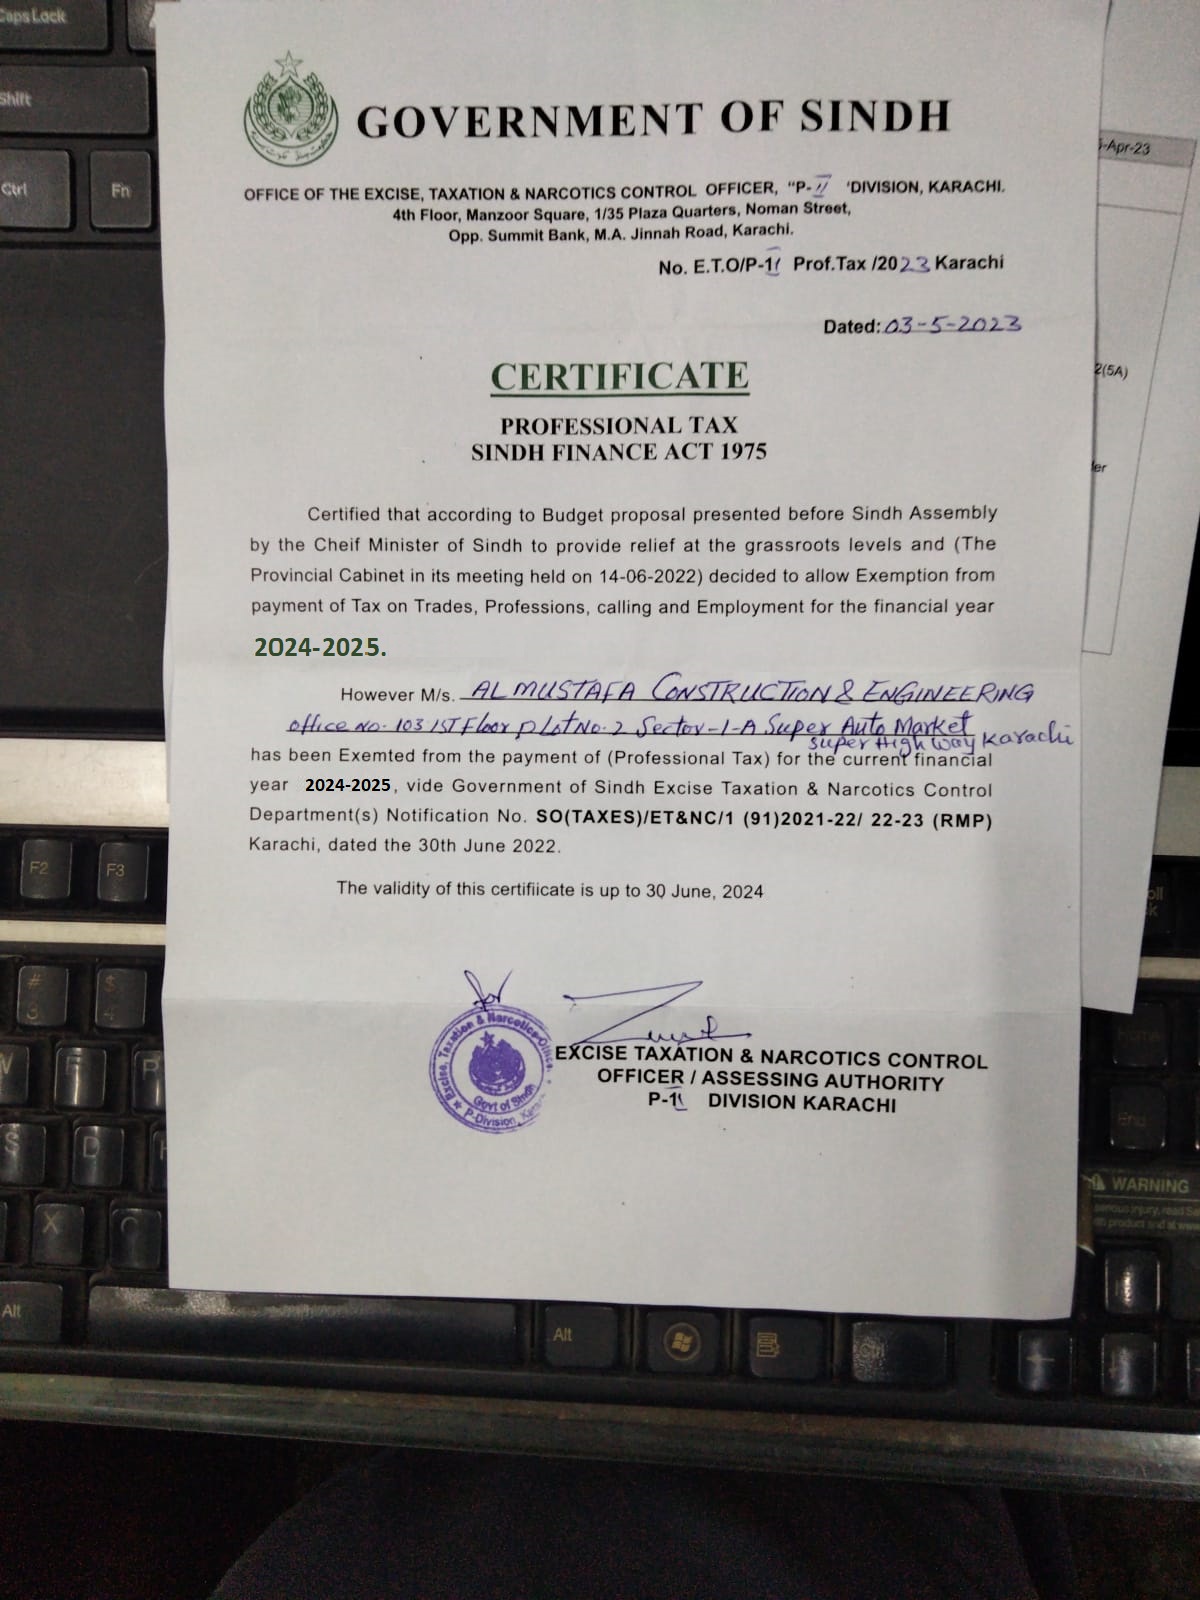 Caps Lock
Shift
Ctrl
Fn
GOVERNMENT OF SINDH
OFFICE OF THE EXCISE, TAXATION & NARCOTICS CONTROL OFFICER, "P-II 'DIVISION, KARACHI.
4th Floor, Manzoor Square, 1/35 Plaza Quarters, Noman Street,
Opp. Summit Bank, M.A. Jinnah Road, Karachi.
No. E.T.O/P-II Prof.Tax /2023 Karachi
Dated: 03-5-2023
CERTIFICATE
PROFESSIONAL TAX
SINDH FINANCE ACT 1975
Certified that according to Budget proposal presented before Sindh Assembly
by the Cheif Minister of Sindh to provide relief at the grassroots levels and (The
Provincial Cabinet in its meeting held on 14-06-2022) decided to allow Exemption from
payment of Tax on Trades, Professions, calling and Employment for the financial year
2024-2025.
However M/s. AL MUSTAFA CONSTRUCTION & ENGINEERING
office no. 103 1ST Floor plot No. 2 Sector-1-A Super Auto Market
Super High Way Karachi
has been Exemted from the payment of (Professional Tax) for the current financial
year 2024-2025, vide Government of Sindh Excise Taxation & Narcotics Control
Department(s) Notification No. SO(TAXES)/ET&NC/1 (91)2021-22/ 22-23 (RMP)
Karachi, dated the 30th June 2022.
The validity of this certifiicate is up to 30 June, 2024
for
Excise, Taxation & Narcotics
Govt of Sindh
P-Division,
EXCISE TAXATION & NARCOTICS CONTROL
OFFICER / ASSESSING AUTHORITY
P-II DIVISION KARACHI
-Apr-23
2(5A)
F2
F3
#
3
$
4
S
D
X
C
Home
End
WARNING
serious injury, read
product and at
Alt
Alt
Ctrl